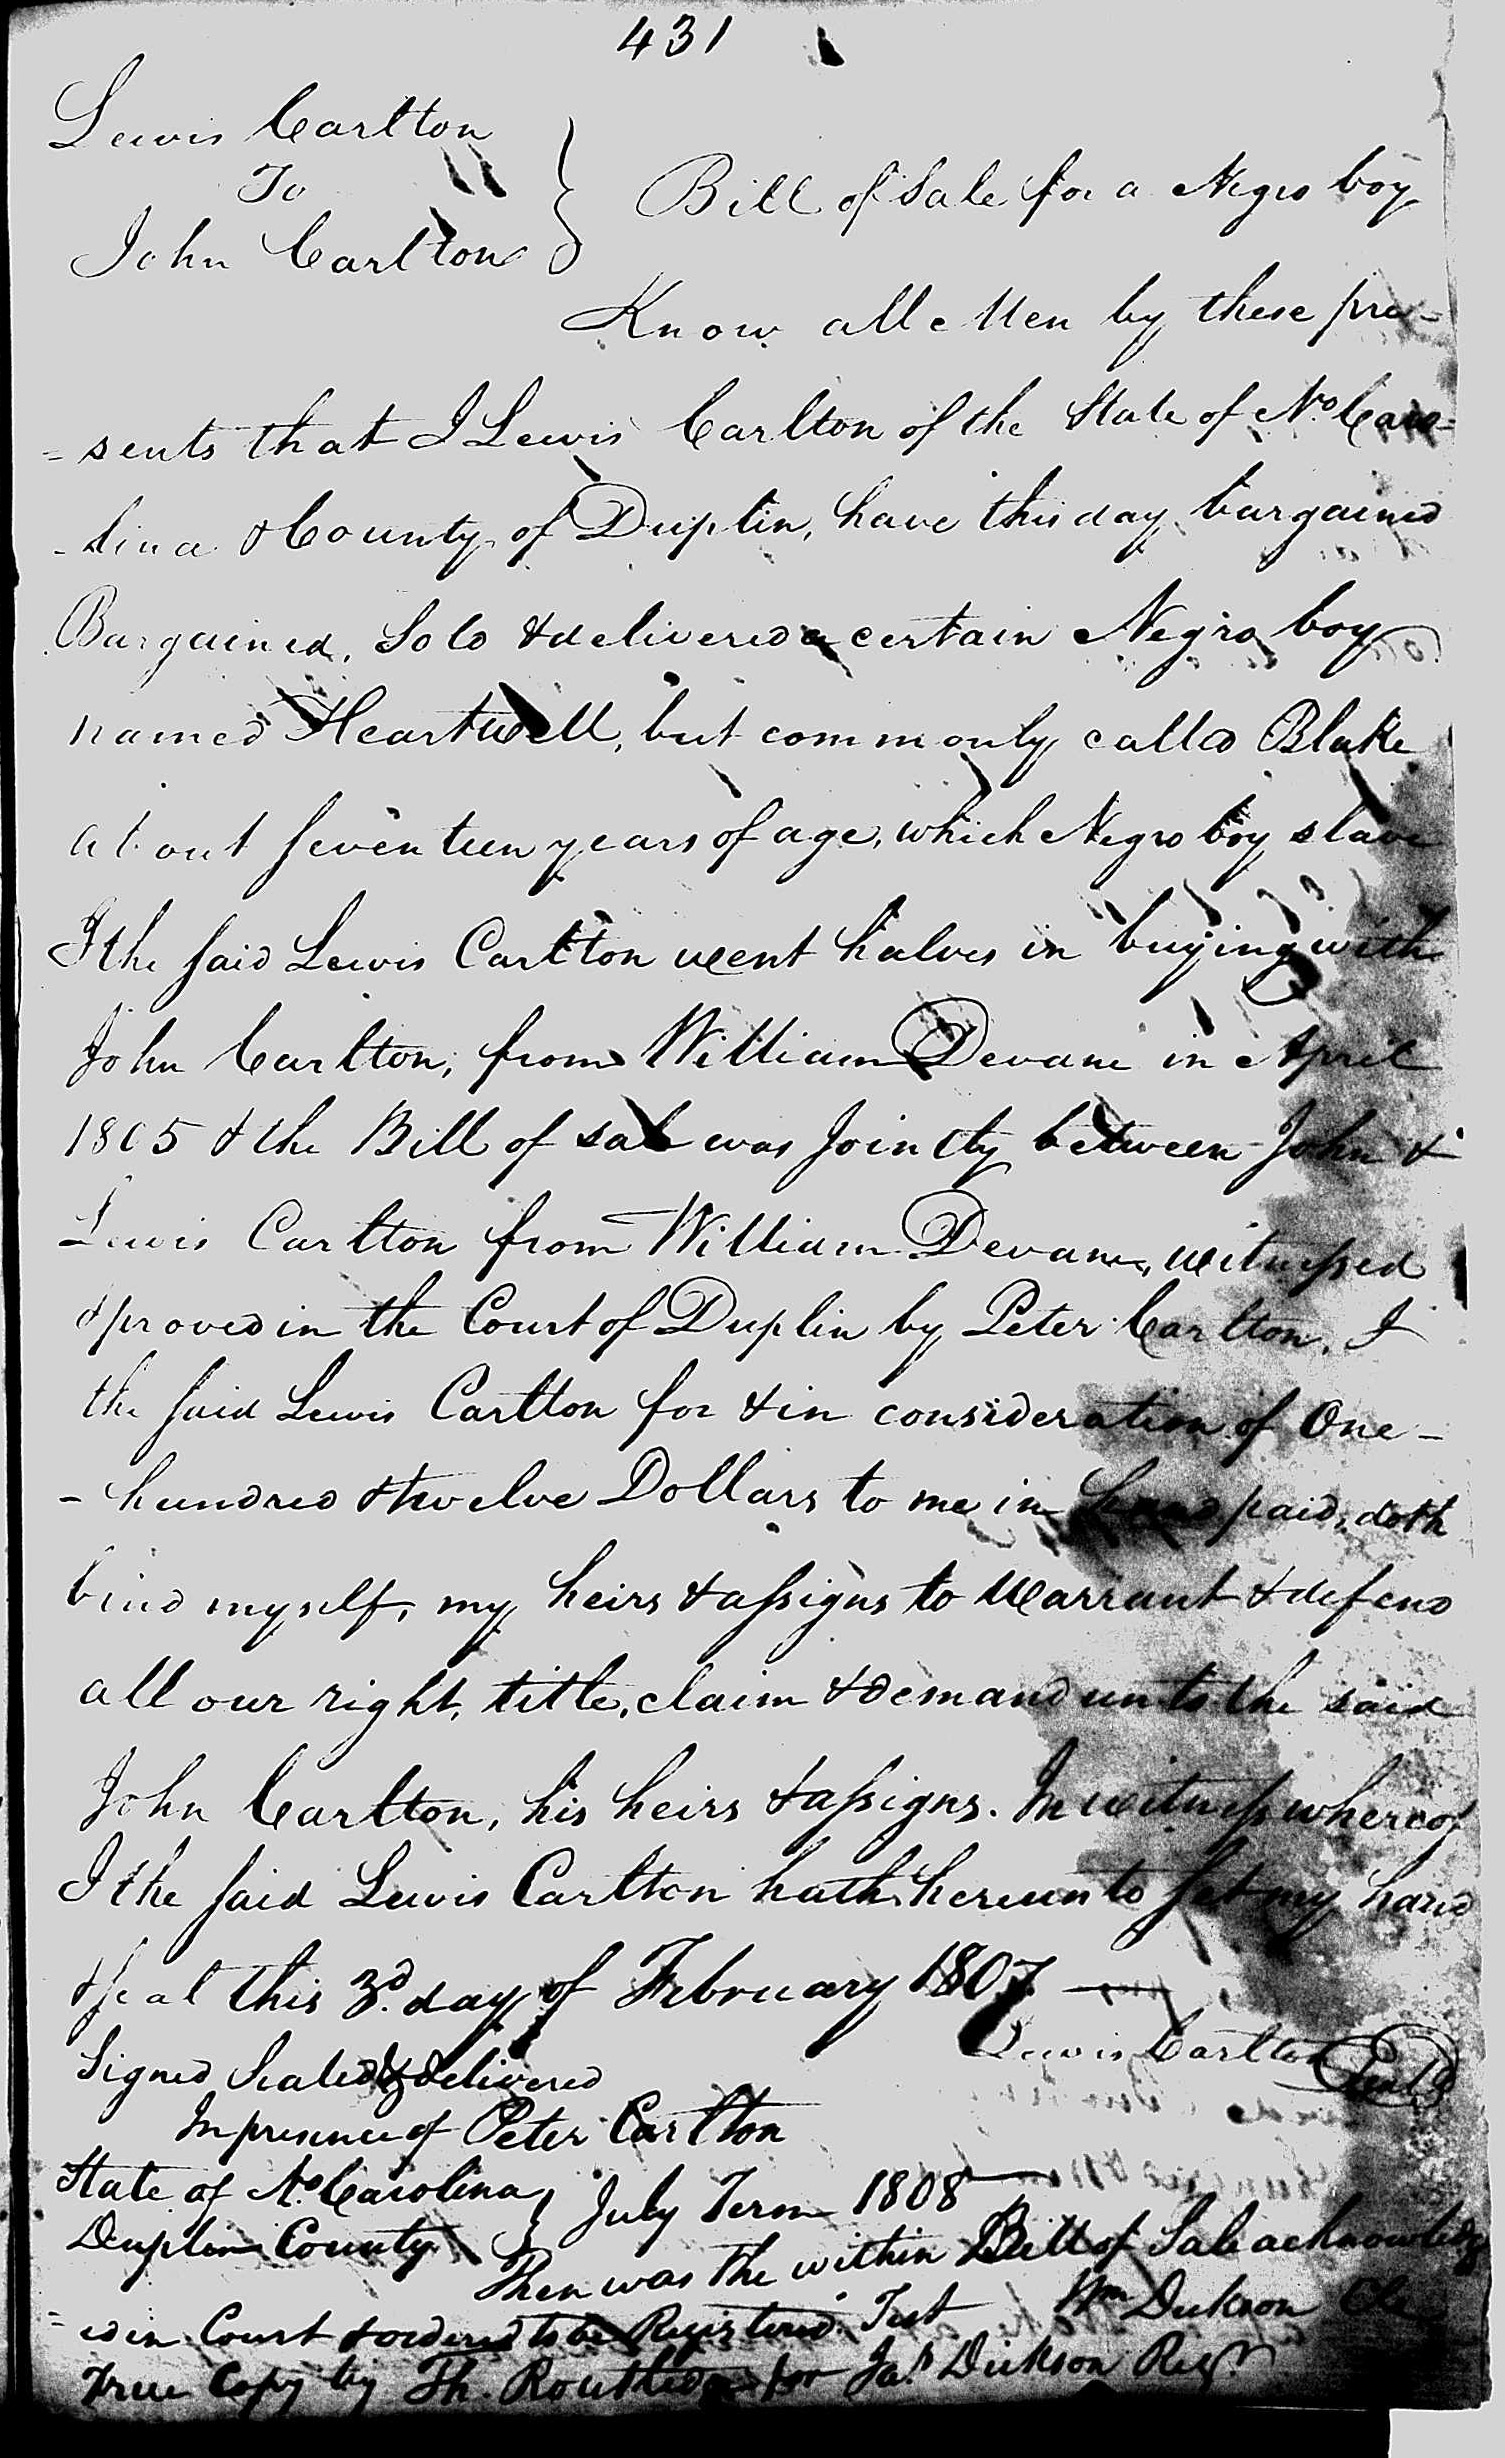 431
Lewis Carlton
To
John Carlton } Bill of Sale for a Negro boy
Know all Men by these pre-
=sents that I Lewis Carlton of the State of No. Caro=
-lina & County of Duplin, have this day bargained
Bargained, Sold & delivered a certain Negro boy
named Heartwell, but commonly called Blake
about seventeen years of age, which Negro boy slave
I the said Lewis Carlton went halves in buying with
John Carlton, from William Devane in April
1805 & the Bill of sale was Jointly between John &
Lewis Carlton from William Devane, witnessed
& proved in the Court of Duplin by Peter Carlton. I
the said Lewis Carlton for & in consideration of One-
-hundred & twelve Dollars to me in hand paid, doth
bind myself, my heirs & assigns to Warrant & defend
all our right, title, claim & demand unto the said
John Carlton, his heirs & assigns. In witness whereof
I the said Lewis Carlton hath hereunto set my hand
& seal this 3d. day of February 1807
Lewis Carlton Seal
Signed Sealed & delivered
In presence of Peter Carlton
State of No. Carolina } July Term 1808
Duplin County
Then was the within Bill of Sale acknowledg
=ed in Court & ordered to be Registered. Test Wm Dickson Clk
True Copy by Th. Routledge for Jas. Dickson Regr